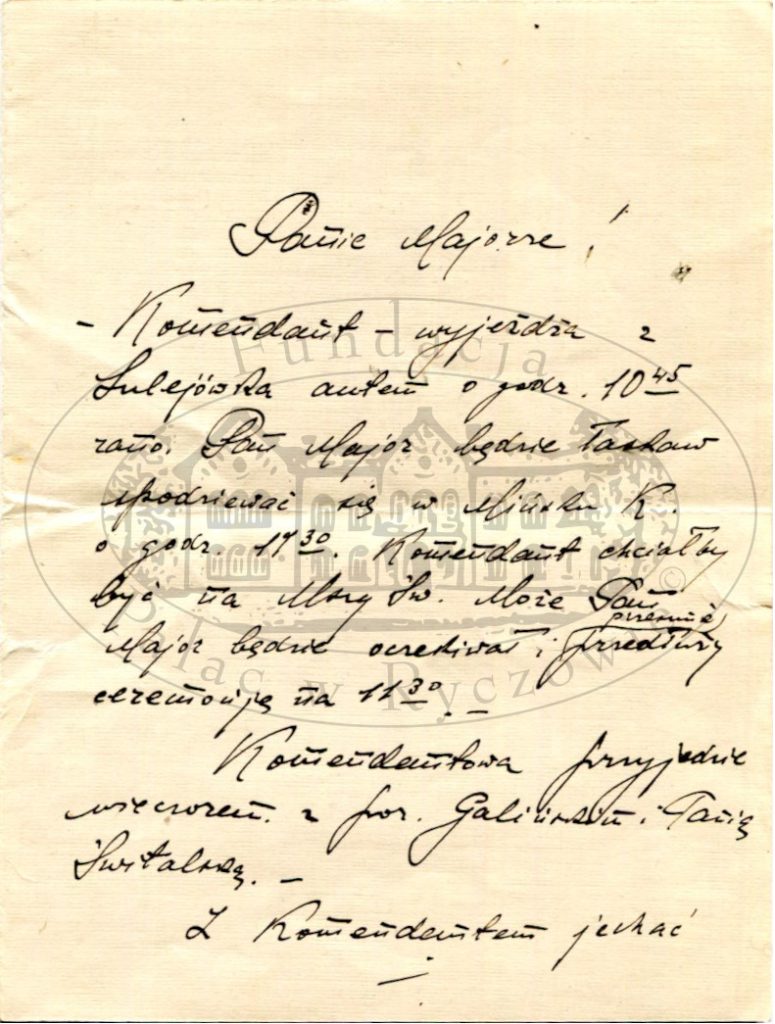 Panie Majorze!
- Komendant - wyjeżdża z
Sulejówka autem o godz. 10 45
rano. Pan Major będzie łaskaw
spodziewać się w Mińsku K.
o godz. 11 30. Komendant chciałby
być na Mszy Św. Może Pan
Major będzie oczekiwał i przesunie
ceremonję na 11 30. -
Komendantowa przyjedzie
wieczorem z por. Galińskim i Panią
Świtalską. -
Z Komendantem jechać
Fundacja
Pałac w Ryczowie
©